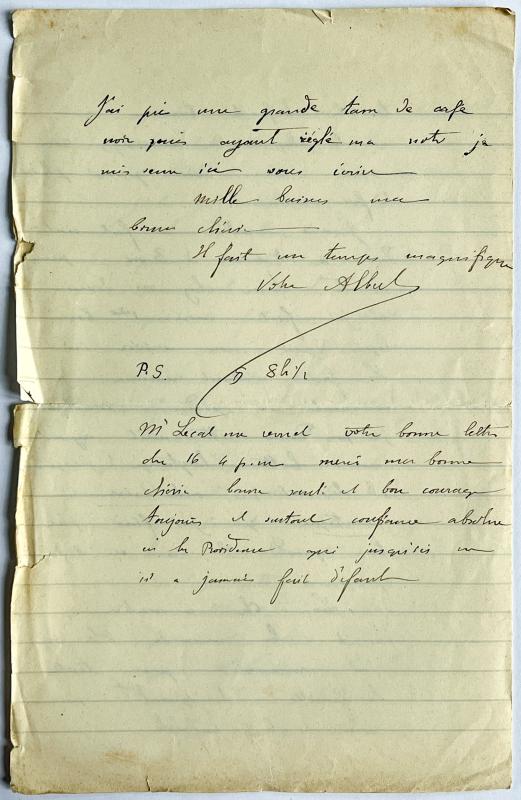 J'ai pris une grande tasse de café
noir puis ayant réglé ma note je
viens ici vous écrire
Mille baisers ma
bonne chérie
Il fait un temps magnifique
Votre Albert
P.S. 8h 1/2
Mr me remet votre bonne lettre
du 16 4 merci ma bonne
chérie bonne santé et bon courage
toujours et surtout confiance absolue
en la Providence qui jusqu'ici
n'a jamais fait défaut